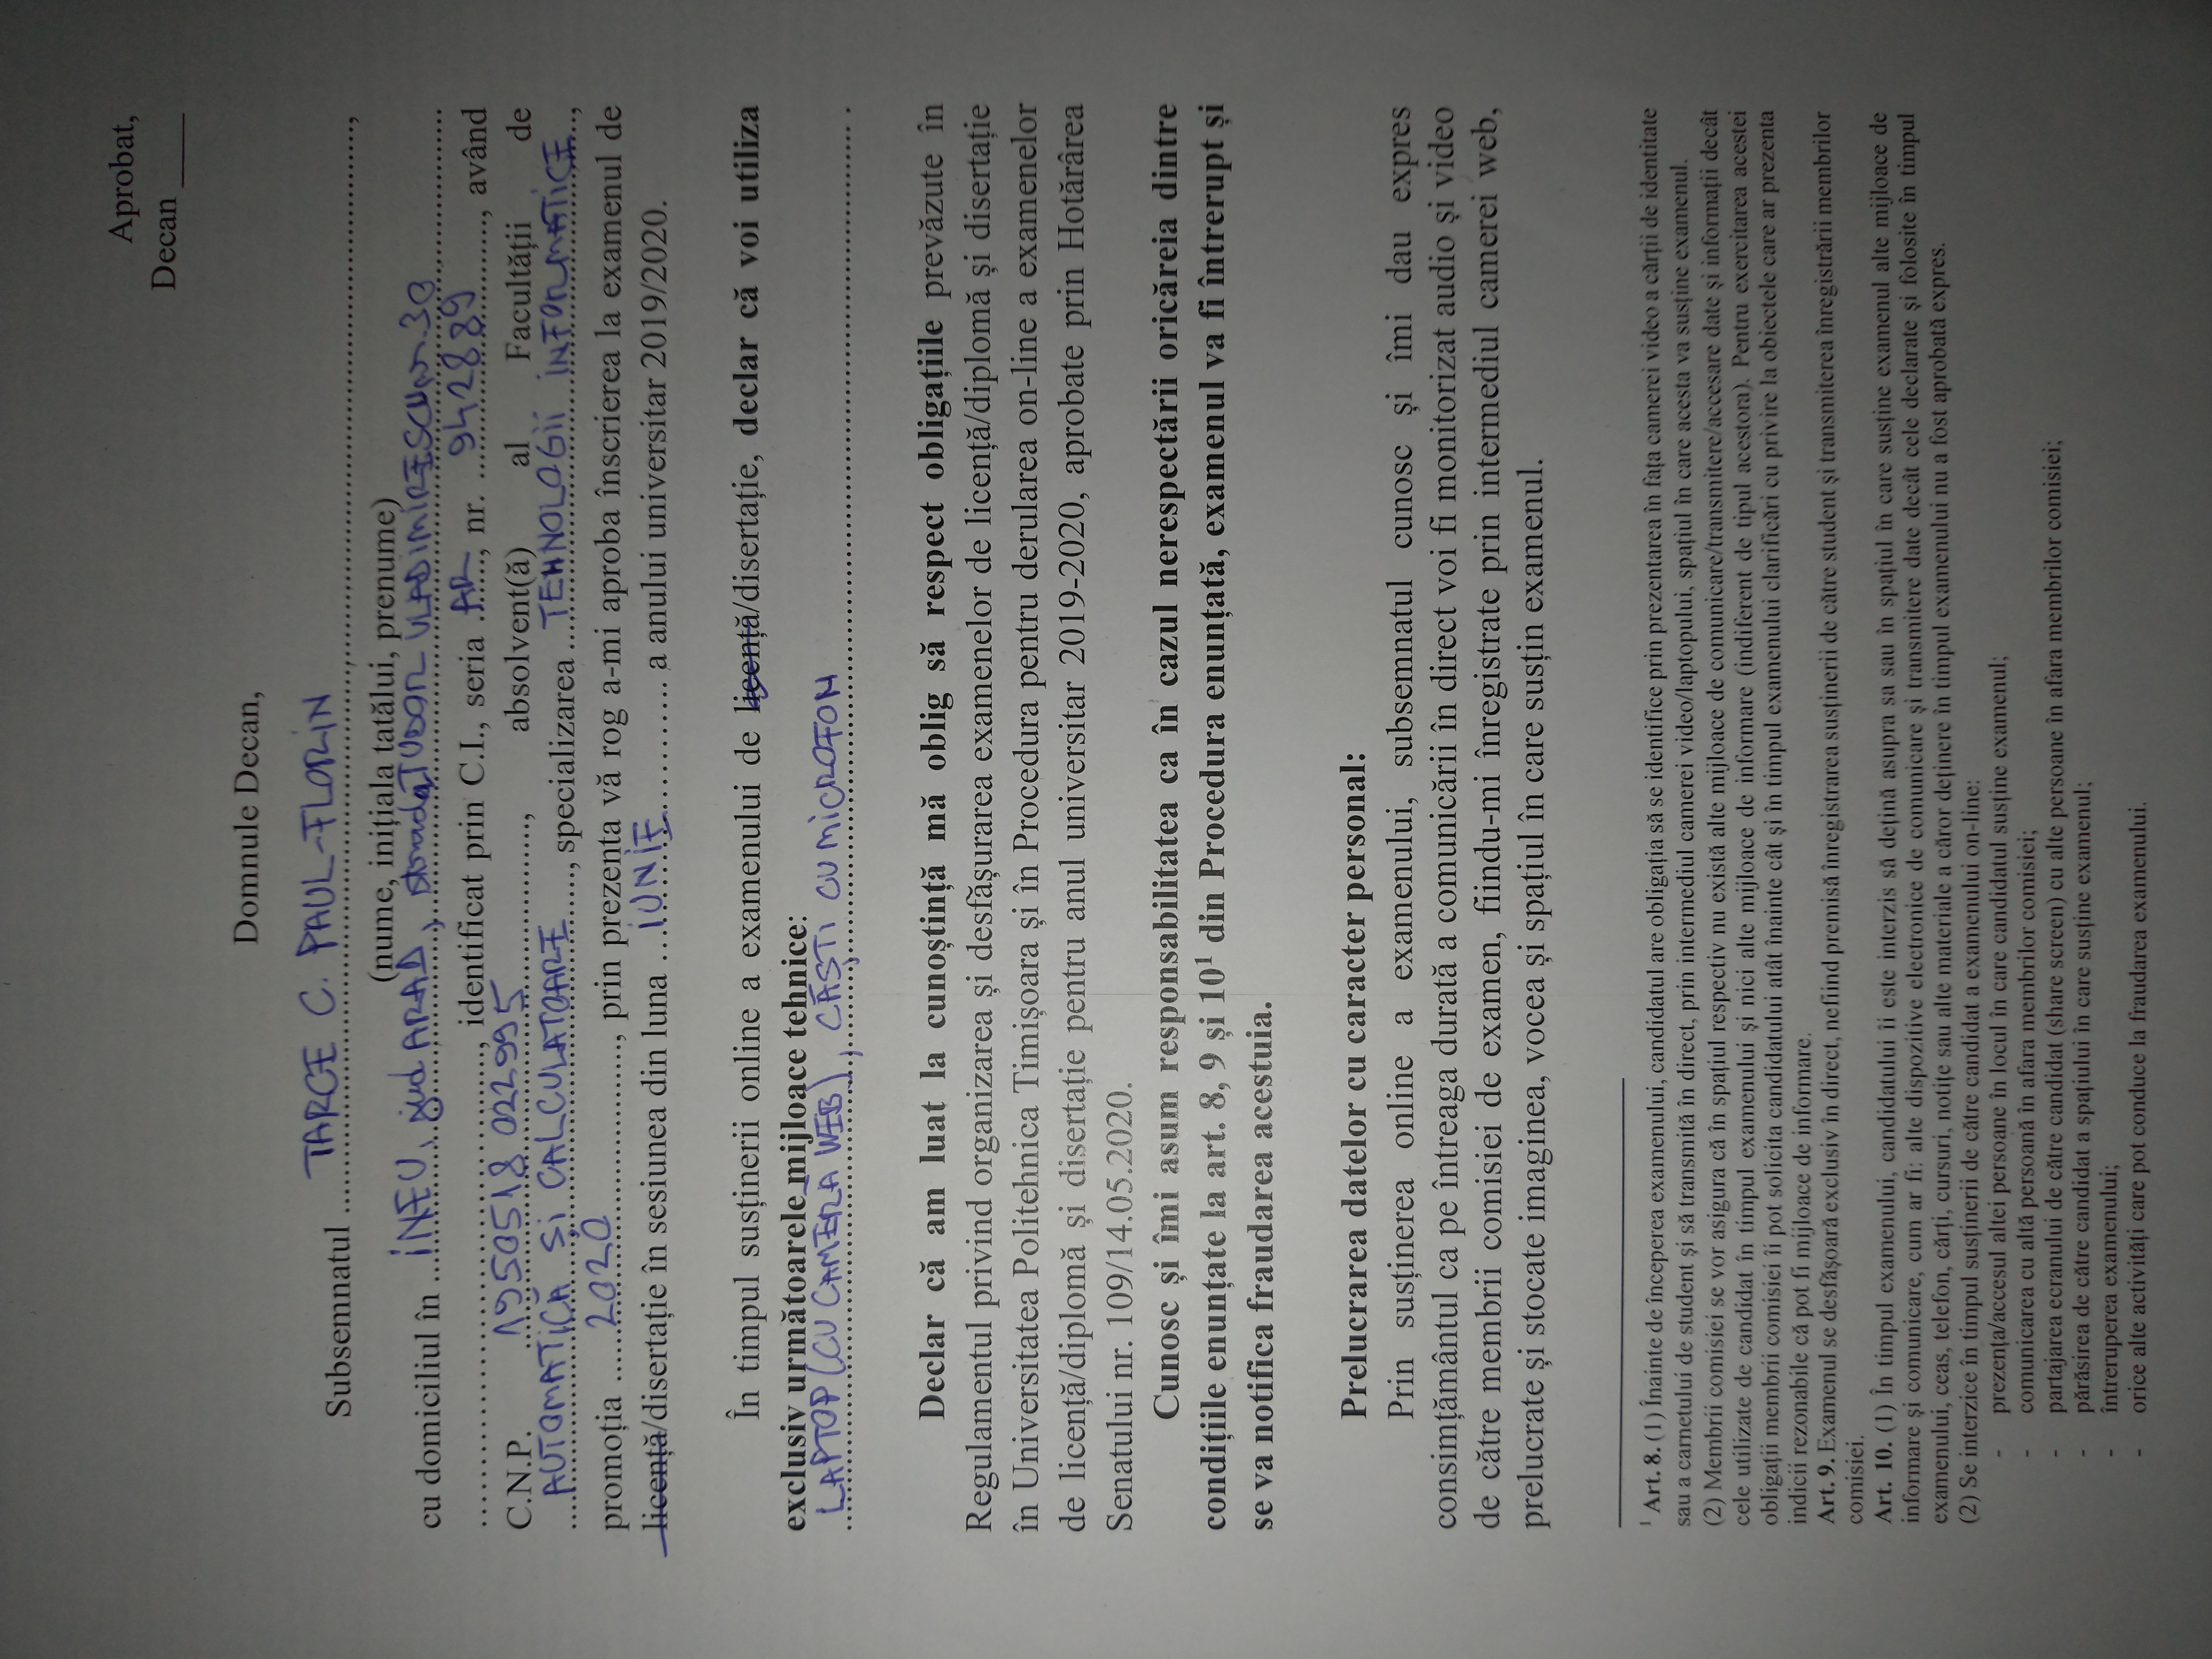 Aprobat,
Decan ____
Domnule Decan,
Subsemnatul TARCE C. PAUL-FLORIN,
(nume, inițiala tatălui, prenume)
cu domiciliul în INEU, jud ARAD, strada TUDOR VLADIMIRESCU nr. 30
, identificat prin C.I., seria AR, nr. 942889, având
C.N.P. 1950518022995, absolvent(ă) al Facultății de
AUTOMATICĂ ȘI CALCULATOARE, specializarea TEHNOLOGII INFORMATICE,
promoția 2020, prin prezenta vă rog a-mi aproba înscrierea la examenul de
licență/disertație în sesiunea din luna IUNIE a anului universitar 2019/2020.
În timpul susținerii online a examenului de licență/disertație, declar că voi utiliza
exclusiv următoarele mijloace tehnice:
LAPTOP (CU CAMERĂ WEB), CĂȘTI CU MICROFON.
Declar că am luat la cunoștință mă oblig să respect obligațiile prevăzute în
Regulamentul privind organizarea și desfășurarea examenelor de licență/diplomă și disertație
în Universitatea Politehnica Timișoara și în Procedura pentru derularea on-line a examenelor
de licență/diplomă și disertație pentru anul universitar 2019-2020, aprobate prin Hotărârea
Senatului nr. 109/14.05.2020.
Cunosc și îmi asum responsabilitatea ca în cazul nerespectării oricăreia dintre
condițiile enunțate la art. 8, 9 și 10¹ din Procedura enunțată, examenul va fi întrerupt și
se va notifica fraudarea acestuia.
Prelucrarea datelor cu caracter personal:
Prin susținerea online a examenului, subsemnatul cunosc și îmi dau expres
consimțământul ca pe întreaga durată a comunicării în direct voi fi monitorizat audio și video
de către membrii comisiei de examen, fiindu-mi înregistrate prin intermediul camerei web,
prelucrate și stocate imaginea, vocea și spațiul în care susțin examenul.
¹ Art. 8. (1) Înainte de începerea examenului, candidatul are obligația să se identifice prin prezentarea în fața camerei video a cărții de identitate
sau a carnetului de student și să transmită în direct, prin intermediul camerei video/laptopului, spațiul în care acesta va susține examenul.
(2) Membrii comisiei se vor asigura că în spațiul respectiv nu există alte mijloace de comunicare/transmitere/accesare date și informații decât
cele utilizate de candidat în timpul examenului și nici alte mijloace de informare (indiferent de tipul acestora). Pentru exercitarea acestei
obligații membrii comisiei îi pot solicita candidatului atât înainte cât și în timpul examenului clarificări cu privire la obiectele care ar prezenta
indicii rezonabile că pot fi mijloace de informare.
Art. 9. Examenul se desfășoară exclusiv în direct, nefiind premisă înregistrarea susținerii de către student și transmiterea înregistrării membrilor
comisiei.
Art. 10. (1) În timpul examenului, candidatului îi este interzis să dețină asupra sa sau în spațiul în care susține examenul alte mijloace de
informare și comunicare, cum ar fi: alte dispozitive electronice de comunicare și transmitere date decât cele declarate și folosite în timpul
examenului, ceas, telefon, cărți, cursuri, notițe sau alte materiale a căror deținere în timpul examenului nu a fost aprobată expres.
(2) Se interzice în timpul susținerii de către candidat a examenului on-line:
- prezența/accesul altei persoane în locul în care candidatul susține examenul;
- comunicarea cu altă persoană în afara membrilor comisiei;
- partajarea ecranului de către candidat (share screen) cu alte persoane în afara membrilor comisiei;
- părăsirea de către candidat a spațiului în care susține examenul;
- întreruperea examenului;
- orice alte activități care pot conduce la fraudarea examenului.